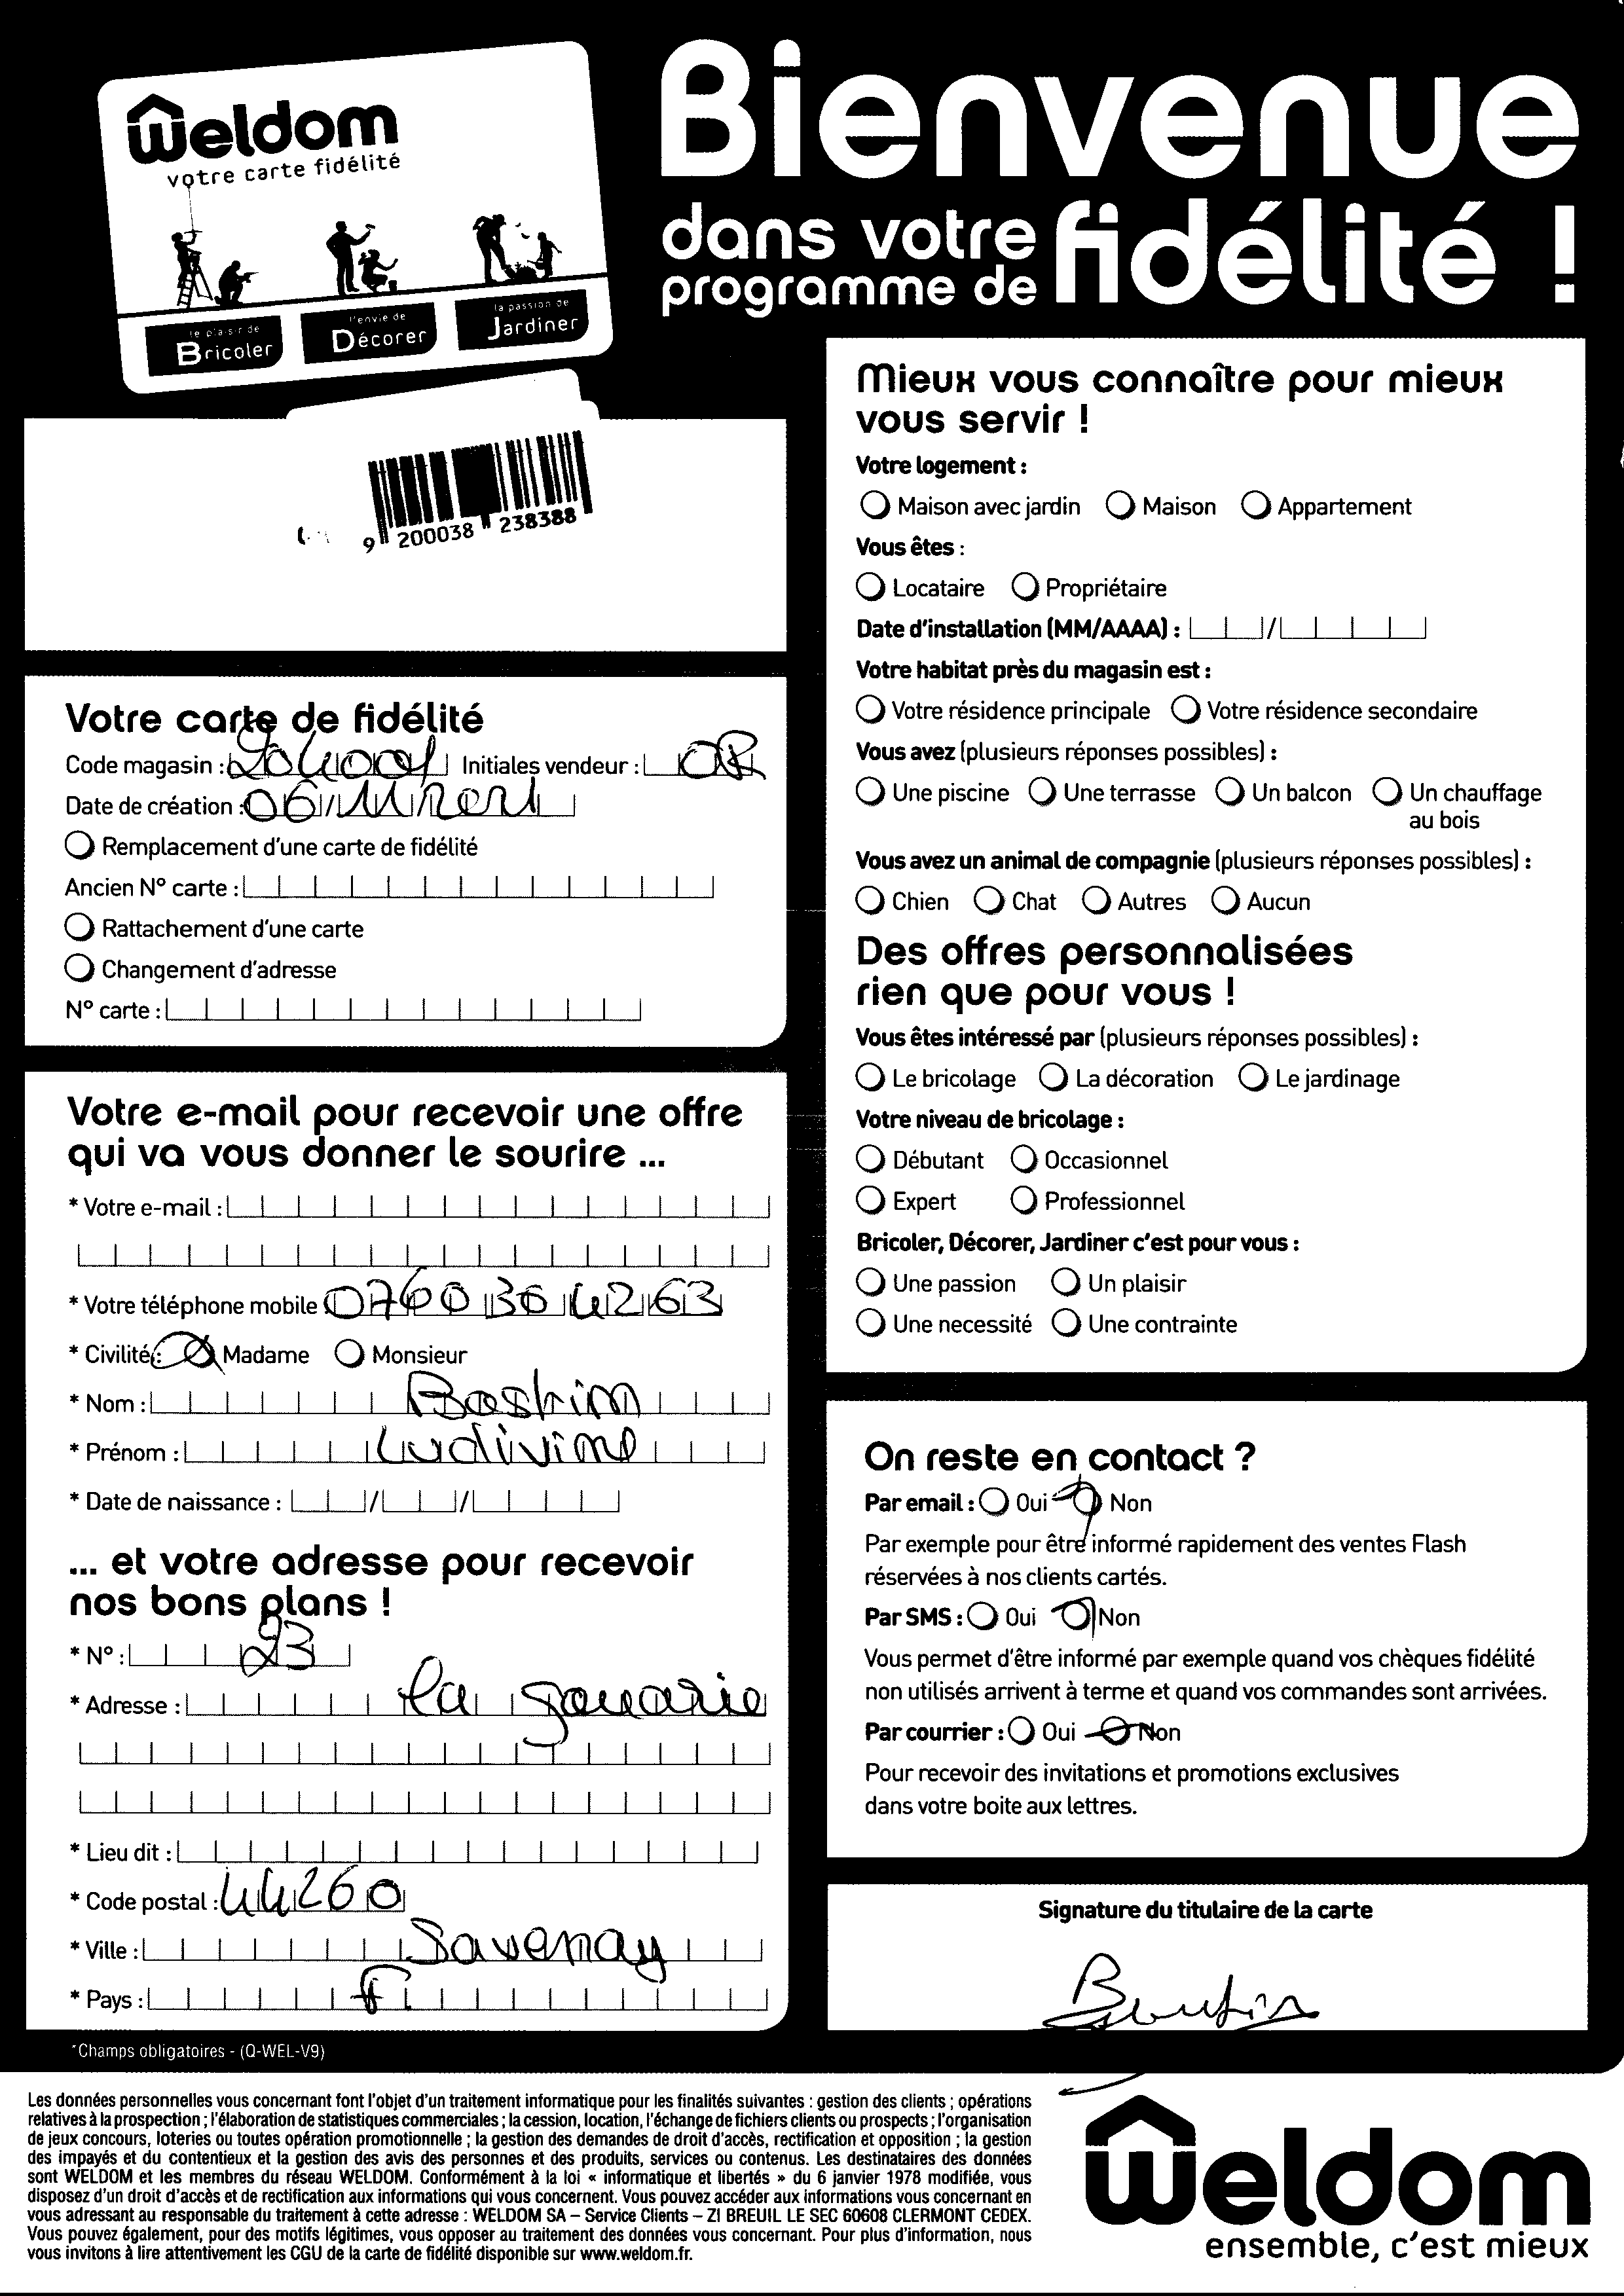 Weldom
votre carte fidélité
le plaisir de
Bricoler
l'envie de
Décorer
la passion de
Jardiner
Bienvenue
dans votre
programme de fidélité !
9 200038 238388
Votre carte de fidélité
Code magasin : Initiales vendeur : OR
Date de création : 06/11/
Remplacement d'une carte de fidélité
Ancien N° carte :
Rattachement d'une carte
Changement d'adresse
N° carte :
Votre e-mail pour recevoir une offre
qui va vous donner le sourire ...
* Votre e-mail :
* Votre téléphone mobile 0760304263
* Civilité : Madame Monsieur
* Nom :
* Prénom : Ludivine
* Date de naissance : / /
... et votre adresse pour recevoir
nos bons plans !
* N° : 23
* Adresse : la
* Lieu dit :
* Code postal : 44260
* Ville : Savenay
* Pays : F
*Champs obligatoires - (Q-WEL-V9)
Mieux vous connaître pour mieux
vous servir !
Votre logement :
Maison avec jardin Maison Appartement
Vous êtes :
Locataire Propriétaire
Date d'installation (MM/AAAA) : /
Votre habitat près du magasin est :
Votre résidence principale Votre résidence secondaire
Vous avez (plusieurs réponses possibles) :
Une piscine Une terrasse Un balcon Un chauffage
au bois
Vous avez un animal de compagnie (plusieurs réponses possibles) :
Chien Chat Autres Aucun
Des offres personnalisées
rien que pour vous !
Vous êtes intéressé par (plusieurs réponses possibles) :
Le bricolage La décoration Le jardinage
Votre niveau de bricolage :
Débutant Occasionnel
Expert Professionnel
Bricoler, Décorer, Jardiner c'est pour vous :
Une passion Un plaisir
Une necessité Une contrainte
On reste en contact ?
Par email : Oui Non
Par exemple pour être informé rapidement des ventes Flash
réservées à nos clients cartés.
Par SMS : Oui Non
Vous permet d'être informé par exemple quand vos chèques fidélité
non utilisés arrivent à terme et quand vos commandes sont arrivées.
Par courrier : Oui Non
Pour recevoir des invitations et promotions exclusives
dans votre boite aux lettres.
Signature du titulaire de la carte
Les données personnelles vous concernant font l'objet d'un traitement informatique pour les finalités suivantes : gestion des clients ; opérations
relatives à la prospection ; l'élaboration de statistiques commerciales ; la cession, location, l'échange de fichiers clients ou prospects ; l'organisation
de jeux concours, loteries ou toutes opération promotionnelle ; la gestion des demandes de droit d'accès, rectification et opposition ; la gestion
des impayés et du contentieux et la gestion des avis des personnes et des produits, services ou contenus. Les destinataires des données
sont WELDOM et les membres du réseau WELDOM. Conformément à la loi « informatique et libertés » du 6 janvier 1978 modifiée, vous
disposez d'un droit d'accès et de rectification aux informations qui vous concernent. Vous pouvez accéder aux informations vous concernant en
vous adressant au responsable du traitement à cette adresse : WELDOM SA – Service Clients – ZI BREUIL LE SEC 60608 CLERMONT CEDEX.
Vous pouvez également, pour des motifs légitimes, vous opposer au traitement des données vous concernant. Pour plus d'information, nous
vous invitons à lire attentivement les CGU de la carte de fidélité disponible sur www.weldom.fr.
Weldom
ensemble, c'est mieux